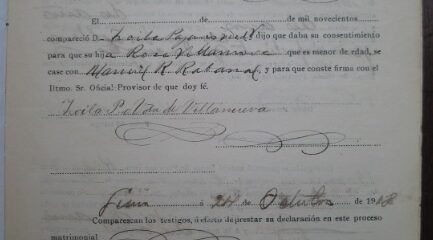 El de de mil novecientos
compareció D. Zoila dijo que daba su consentimiento
para que su hija Rosa Villanueva que es menor de edad, se
case con Manuel R. Rabanal, y para que conste firma con el
Iltmo. Sr. Oficial Provisor de que doy fé.
Zoila P. Vda de Villanueva
Lima á 24 Octubre de 19
Comparescan los testigos, á efecto de prestar su declaración en este proceso
matrimonial